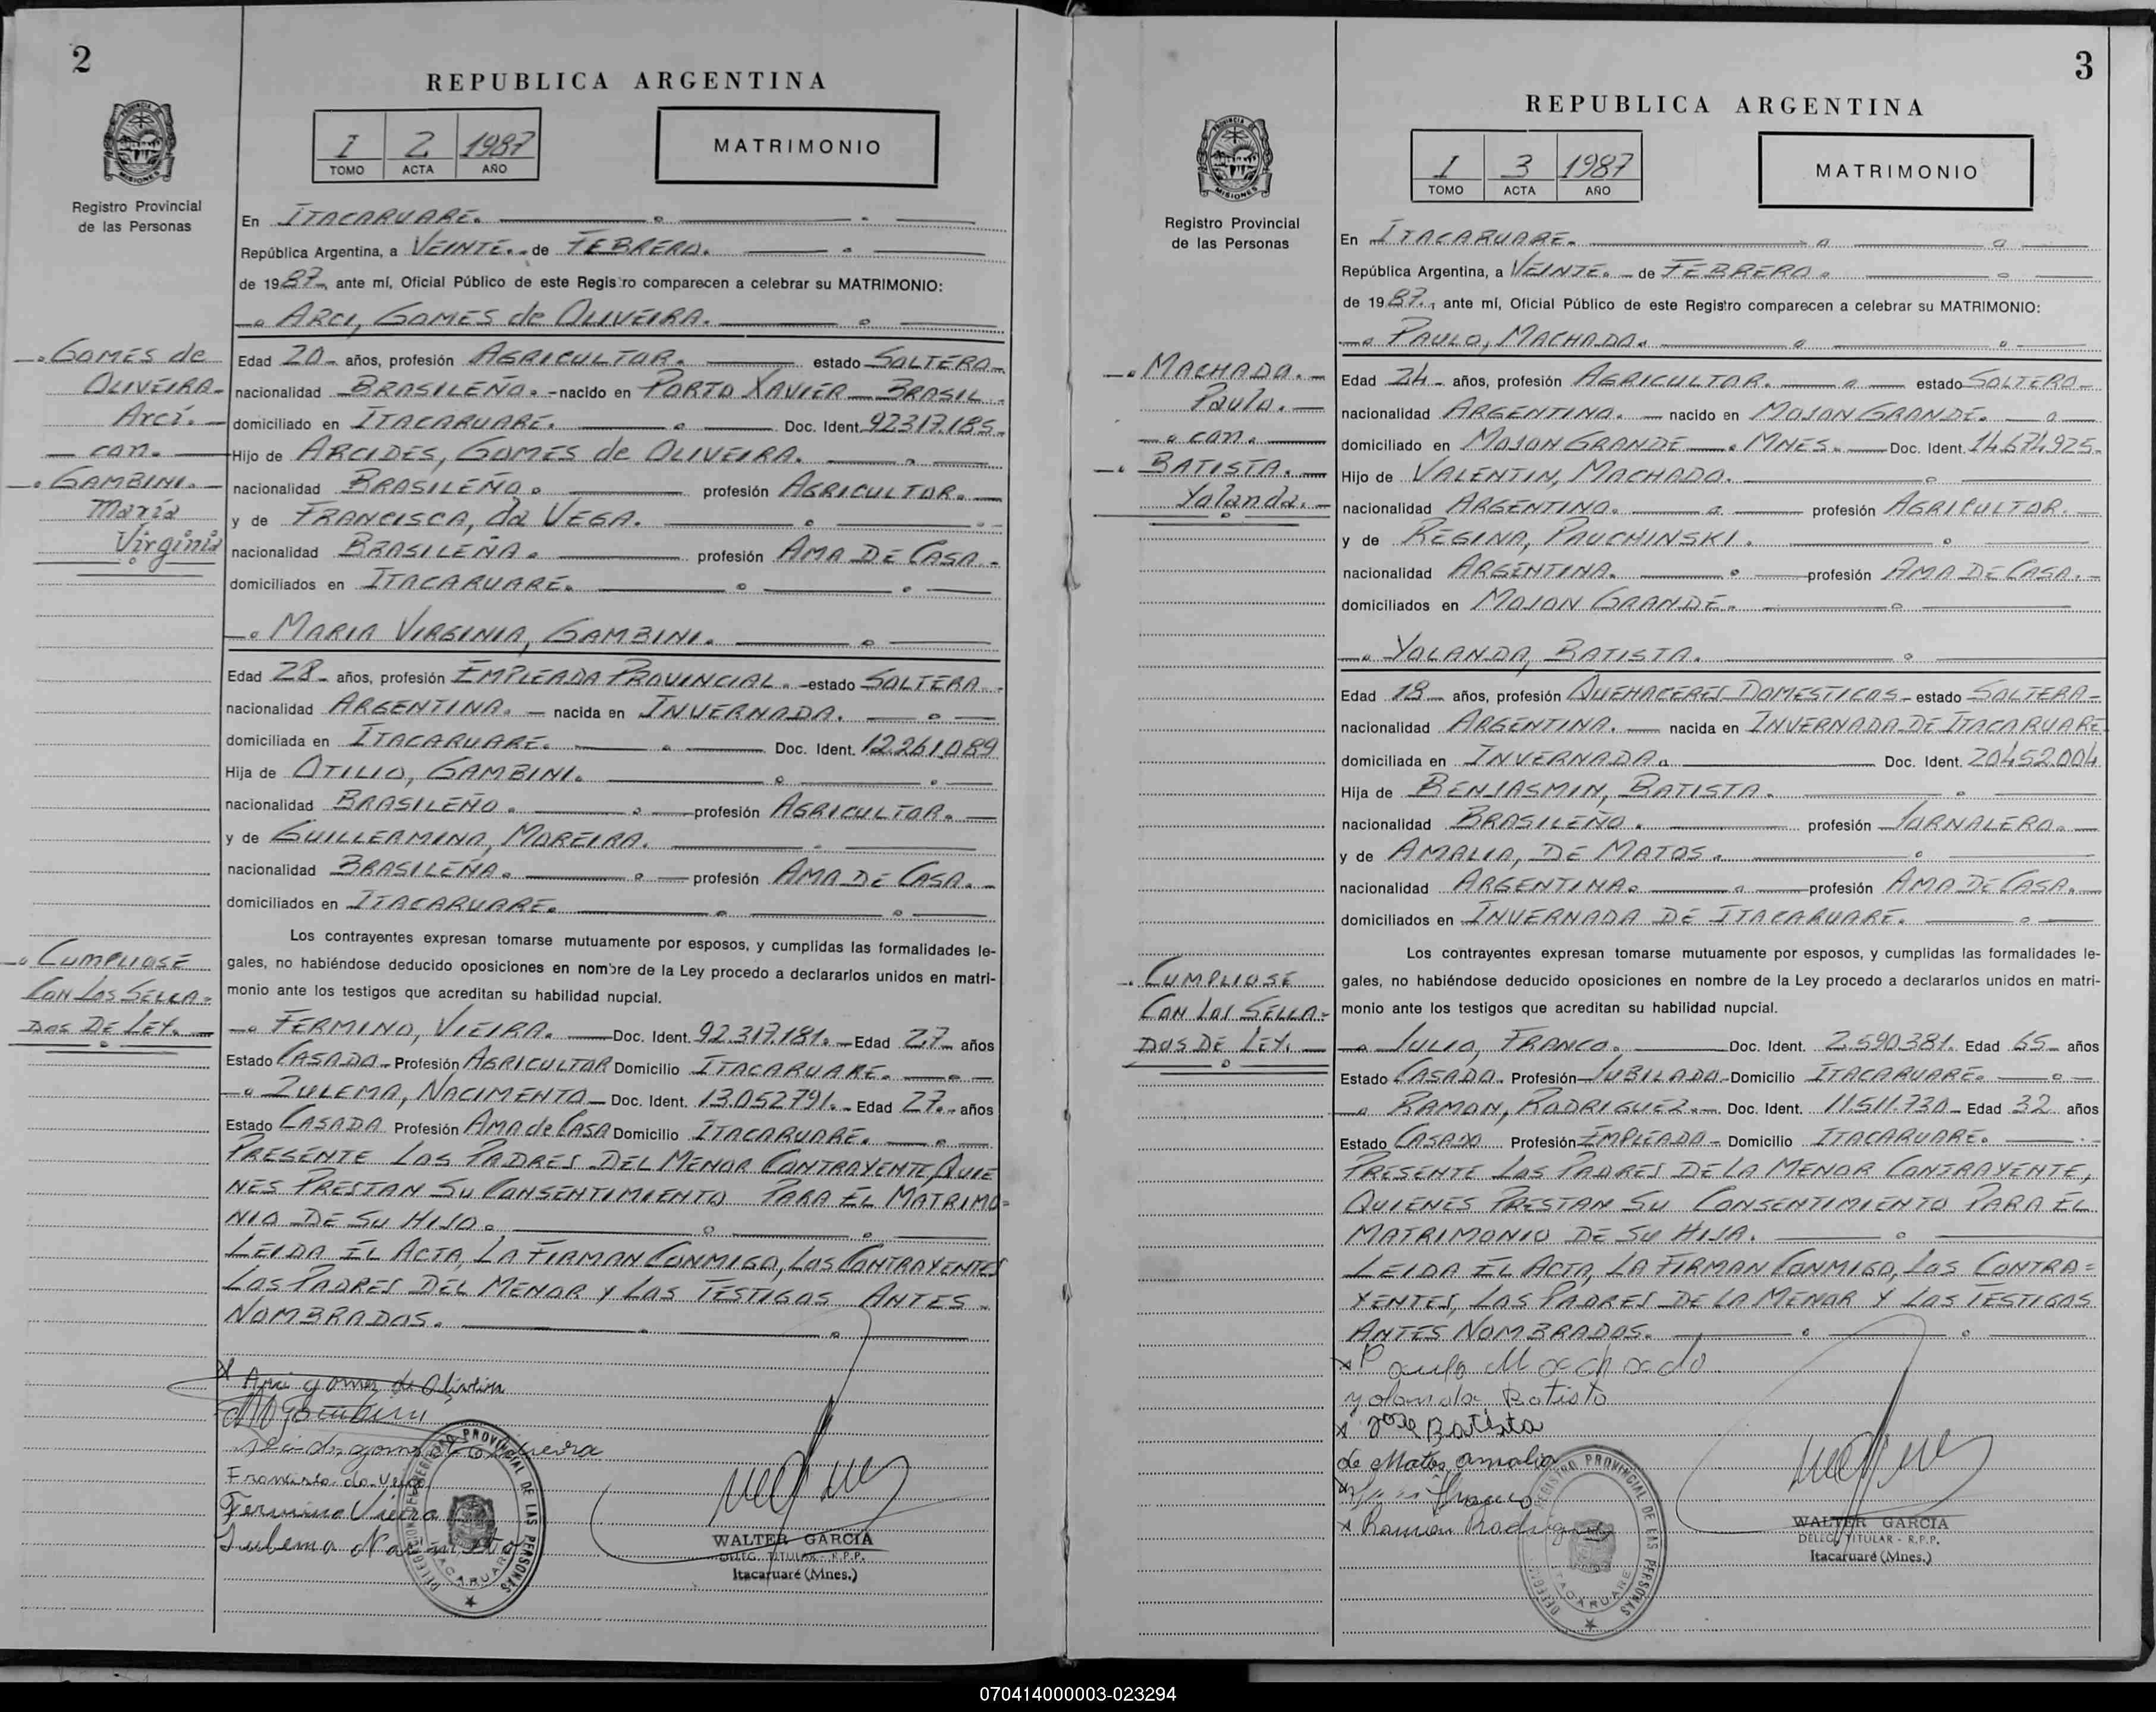 2
REPUBLICA ARGENTINA
I 2 1987
TOMO ACTA AÑO
MATRIMONIO
PROVINCIA DE MISIONES
Registro Provincial
de las Personas
En ITACARUARE.
República Argentina, a VEINTE. de FEBRERO.
de 1987, ante mí, Oficial Público de este Registro comparecen a celebrar su MATRIMONIO:
ARCI, GOMES de OLIVEIRA.
GOMES de
OLIVEIRA
Arcí.
con.
GAMBINI.
María
Virginia
Edad 20 años, profesión AGRICULTOR. estado SOLTERO
nacionalidad BRASILEÑO. nacido en PORTO XAVIER BRASIL
domiciliado en ITACARUARE. Doc. Ident. 92317.185
Hijo de ARCIDES, GOMES de OLIVEIRA.
nacionalidad BRASILEÑO. profesión AGRICULTOR.
y de FRANCISCA, da VEGA.
nacionalidad BRASILEÑA. profesión AMA DE CASA.
domiciliados en ITACARUARE.
MARIA VIRGINIA, GAMBINI.
Edad 28 años, profesión EMPLEADA PROVINCIAL. estado SOLTERA
nacionalidad ARGENTINA. nacida en INVERNADA.
domiciliada en ITACARUARE. Doc. Ident. 12.261.089
Hija de OTILIO, GAMBINI.
nacionalidad BRASILEÑO. profesión AGRICULTOR.
y de GUILLERMINA, MOREIRA.
nacionalidad BRASILEÑA. profesión AMA DE CASA.
domiciliados en ITACARUARE.
Los contrayentes expresan tomarse mutuamente por esposos, y cumplidas las formalidades le-
gales, no habiéndose deducido oposiciones en nombre de la Ley procedo a declararlos unidos en matri-
monio ante los testigos que acreditan su habilidad nupcial.
CUMPLIOSE
CON LOS SELLA=
DOS DE LEY.
FERMINO, VIEIRA. Doc. Ident. 92.317.181. Edad 27 años
Estado CASADO Profesión AGRICULTOR Domicilio ITACARUARE.
ZULEMA, NACIMENTO Doc. Ident. 13.052791. Edad 27. años
Estado CASADA Profesión AMA de CASA Domicilio ITACARUARE.
PRESENTE LOS PADRES DEL MENOR CONTRAYENTE, QUIE
NES PRESTAN SU CONSENTIMIENTO PARA EL MATRIMO=
NIO DE SU HIJO.
LEIDA EL ACTA, LA FIRMAN CONMIGO, LOS CONTRAYENTES
LOS PADRES DEL MENOR Y LOS TESTIGOS ANTES
NOMBRADOS.
x Arci gomes de Oliveira
Fermino Vieira
DELEGACION DEL REGISTRO PROVINCIAL DE LAS PERSONAS
ITACARUARE
WALTER GARCIA
DELEG. TITULAR - R.P.P.
Itacaruaré (Mnes.)
3
REPUBLICA ARGENTINA
I 3 1987
TOMO ACTA AÑO
MATRIMONIO
PROVINCIA DE MISIONES
Registro Provincial
de las Personas
En ITACARUARE.
República Argentina, a VEINTE. de FEBRERO.
de 1987, ante mí, Oficial Público de este Registro comparecen a celebrar su MATRIMONIO:
PAULO, MACHADO.
MACHADO.
Paulo.
con.
BATISTA.
Yolanda.
Edad 24 años, profesión AGRICULTOR. estado SOLTERO
nacionalidad ARGENTINO. nacido en MOJON GRANDE.
domiciliado en MOJON GRANDE. MNES. Doc. Ident. 14.674.925
Hijo de VALENTIN, MACHADO.
nacionalidad ARGENTINO. profesión AGRICULTOR.
y de REGINA, PAUCHINSKI.
nacionalidad ARGENTINA. profesión AMA DE CASA.
domiciliados en MOJON GRANDE.
YOLANDA, BATISTA.
Edad 18 años, profesión QUEHACERES DOMESTICOS estado SOLTERA
nacionalidad ARGENTINA. nacida en INVERNADA DE ITACARUARE
domiciliada en INVERNADA. Doc. Ident. 20452.004
Hija de BENJASMIN, BATISTA.
nacionalidad BRASILEÑO. profesión JORNALERO.
y de AMALIA, DE MATOS.
nacionalidad ARGENTINA. profesión AMA DE CASA.
domiciliados en INVERNADA DE ITACARUARE.
Los contrayentes expresan tomarse mutuamente por esposos, y cumplidas las formalidades le-
gales, no habiéndose deducido oposiciones en nombre de la Ley procedo a declararlos unidos en matri-
monio ante los testigos que acreditan su habilidad nupcial.
CUMPLIOSE
CON LOS SELLA=
DOS DE LEY.
JULIO, FRANCO. Doc. Ident. 2.590381. Edad 65 años
Estado CASADO. Profesión JUBILADO Domicilio ITACARUARE.
RAMON, RODRIGUEZ. Doc. Ident. 11.511.730 Edad 32 años
Estado CASADO Profesión EMPLEADO Domicilio ITACARUARE.
PRESENTE LOS PADRES DE LA MENOR CONTRAYENTE,
QUIENES PRESTAN SU CONSENTIMIENTO PARA EL
MATRIMONIO DE SU HIJA.
LEIDA EL ACTA, LA FIRMAN CONMIGO, LOS CONTRA=
YENTES, LOS PADRES DE LA MENOR Y LOS TESTIGOS
ANTES NOMBRADOS.
x Paulo Machado
yolanda Batista
x José Batista
de Matos amalia
x Franco
x Ramon Rodriguez
DELEGACION DEL REGISTRO PROVINCIAL DE LAS PERSONAS
ITACARUARE
WALTER GARCIA
DELEG. TITULAR - R.P.P.
Itacaruaré (Mnes.)
070414000003-023294